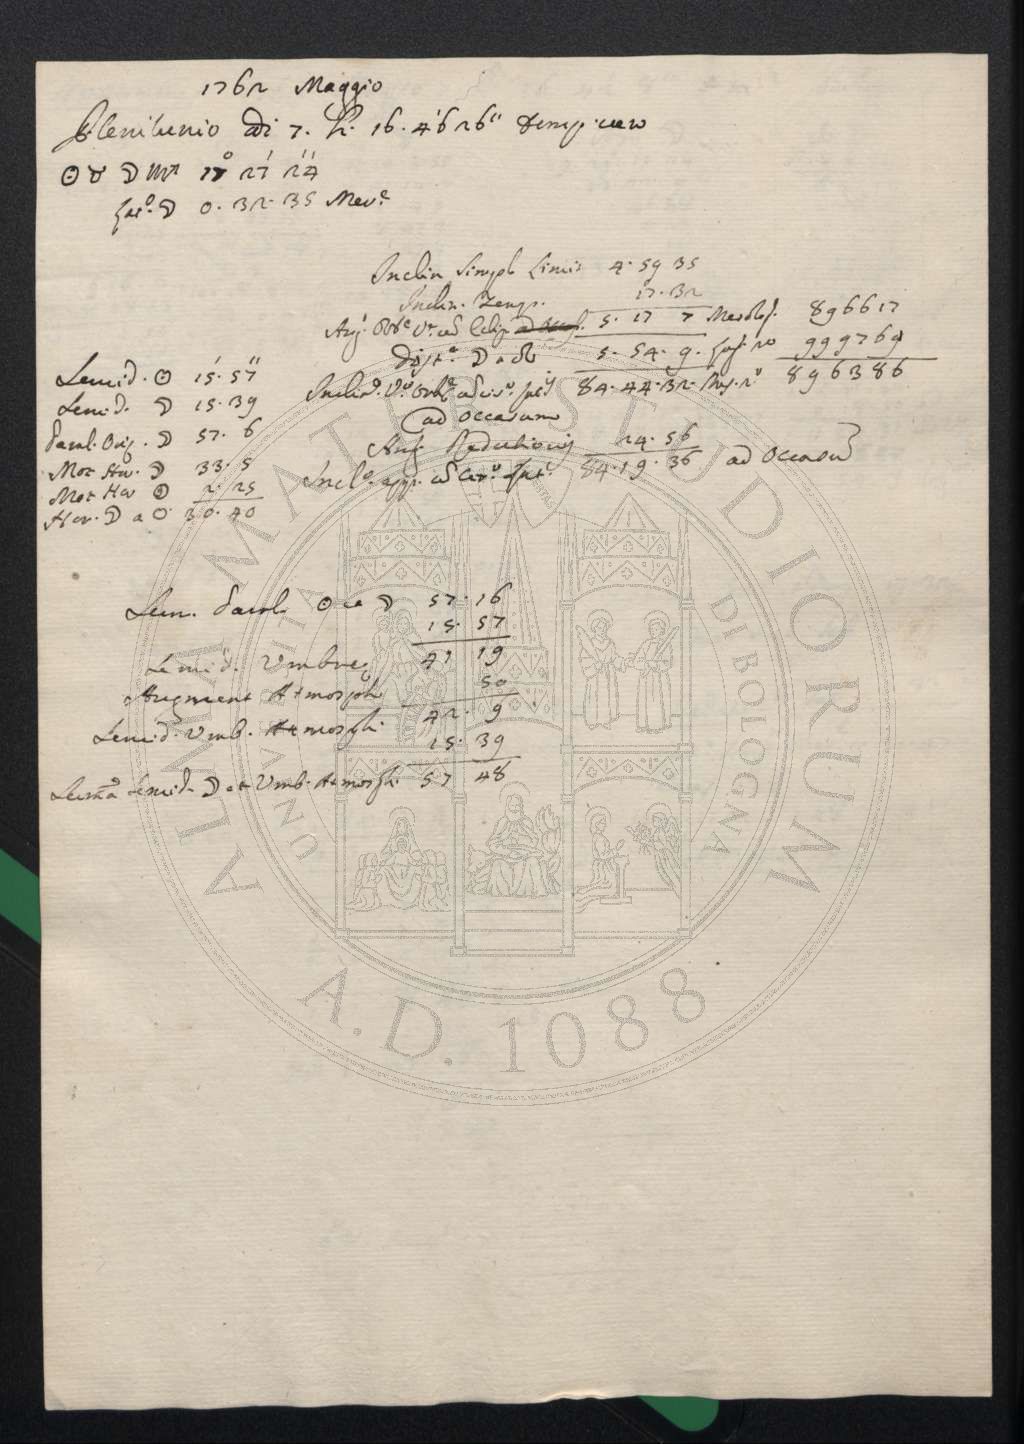 1762 Maggio
Plenilunio adi 7. h. 16. 46' 26" temp. vero
☉ ♉ ☽ ♏ 17° 27' 24"
Lat.e ☽ 0. 32. 35 Mer.e
Inclin. Simpl. Limit. 4. 59 35
Inclin. Temp. 17. 32
Ang. Orb.e V.e cum Eclip. 5. 17 7 896617
Dist.a ☽ a ☊ 5. 54. 9. 999769
84. 44. 32 896386
ad occasum
Ang. Reductionis 24. 56
84. 19. 36 ad Occasu
Semid. ☉ 15'. 57"
Semid. ☽ 15. 39
Paral. Oriz. ☽ 57. 6
Mot. Hor. ☽ 33. 5
Mot. Hor ☉ 2. 25
Hor. ☽ a ☉ 30. 40
Sum. Paral. ☉ et ☽ 57. 16
15. 57
Semid. Umbræ 41 19
Augment Atmosph. 50
Semid. Umb. Atmosph. 42. 9
15. 39
Summa Semid. ☽ et Umb. Atmosph. 57 48
ALMA MATER STUDIORUM
UNIVERSITÀ DI BOLOGNA
A.D. 1088